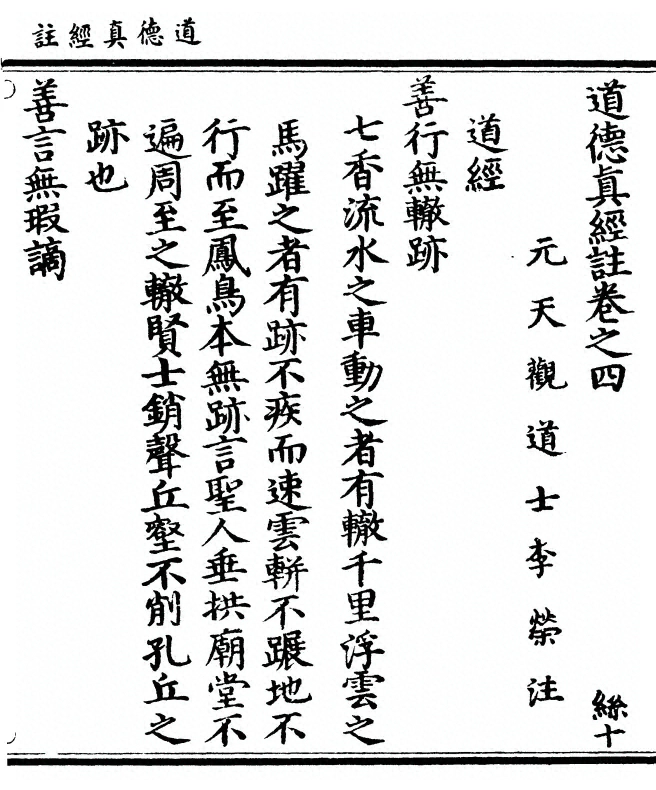 道德真經註
道德眞經註卷之四
絲十
元天觀道士李榮注
道經
善行無轍跡
七香流水之車動之者有轍千里浮雲之
馬躍之者有跡不疾而速雲軿不蹍地不
行而至鳳鳥本無跡言聖人垂拱廟堂不
遍周至之轍賢士銷聲丘壑不削孔丘之
跡也
善言無瑕謫